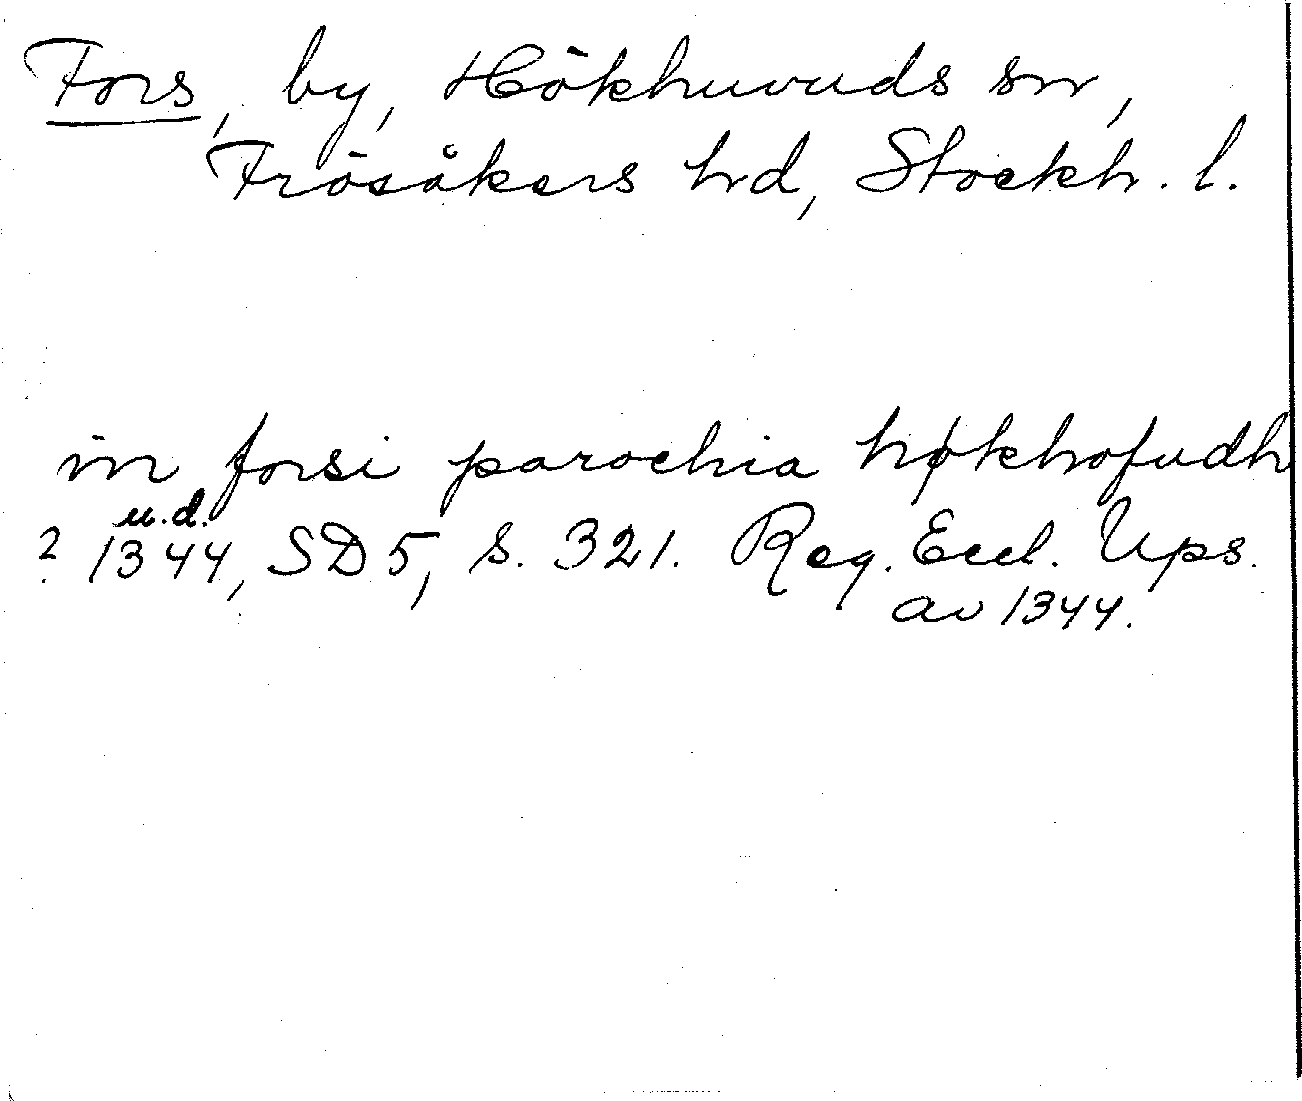 Fors, by, Hökhuvuds sn,
Frösåkers hd, Stockh. l.
in forsi parochia høkhofudh
u.d.
? 1344, SD 5, s. 321. Reg. Eccl. Ups.
av 1344.